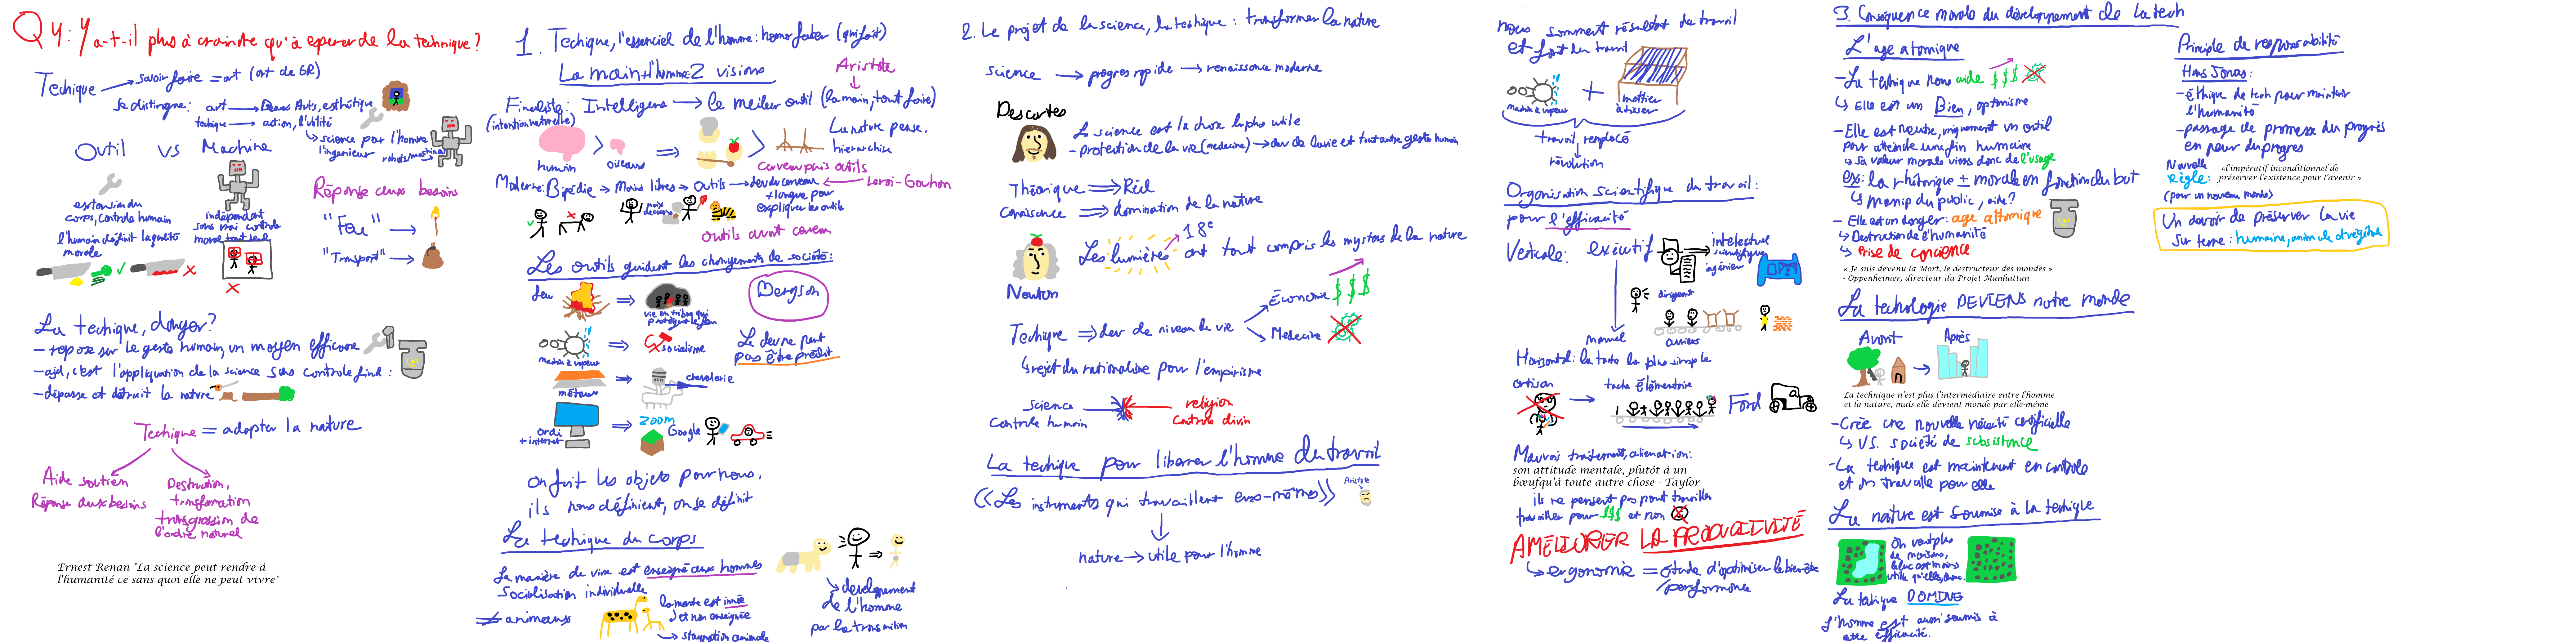 Q4: Y a-t-il plus à craindre qu'à esperer de la technique?
Techique → savoir faire = art (art de GR)
Se distingue: art → Beaux Arts, esthétique
techique → action, l'utilité
↳ science par l'homme
l'ingenieur
robots/machines
Outil vs Machine
extension du
corps, controle humain
l'humain définit la qualité
morale
indépendant
sans vrai controle
moral, tout seul
Réponse aux besoins
"Feu" →
"Transport" →
La techique, danger?
- repose sur le geste humain, un moyen efficace
- ajd, c'est l'appliquation de la science sans controle final:
- dépasse et détruit la nature
Techique = adapter la nature
Aide soutien
Réponse aux besoins
Destruction,
transformation
transgression de
l'ordre naturel
Ernest Renan "La science peut rendre à
l'humanité ce sans quoi elle ne peut vivre"
1. Techique, l'essenciel de l'homme: homo faber (qui fait)
La main + l'homme: 2 visions
Aristote
Finaliste: Intelligence → le meileur outil (la main, tout faire)
(intention naturelle)
humain > oiseaux
La nature pense,
hierarchise
Cerveau puis outils
Moderne: Bipédie → Mains libres → Outils → dev du cerveau ← Leroi-Gourhan
+ longue pour
expliquer les outils
outils avant cerveau
Les outils guident les changements de société:
feu ⇒ vie en tribu qui
protegent le feu
Bergson
machin à vapeur ⇒ socialisme
Le dev ne peut
pas être prédit
métaux ⇒ chevalerie
ordi
+ internet ⇒ ZOOM
Google
On fait les objets pour nous,
ils nous définient, on se définit
La techique du corps
La manière de vivre est enseigné aux hommes
socialisation individuelle
≠ animaux
la marche est innée
et non enseignée
↳ stagnation animale
↳ developpement
de l'homme
par la transmition
2. Le projet de la science, la techique: transformer la nature
science → progres rapide → renaissance moderne
Descartes
La science est la chose la plus utile
- protection de la vie (medecine) → dev de la vie et tout autre geste humain
Théorique ⇒ Réel
Conaissance ⇒ domination de la nature
Newton
18e
Les lumières ont tout compris les mysteres de la nature
Techique ⇒ dev de niveau de vie
Économie $$$
Medecine
↳ rejet du rationalisme pour l'empirisme
Science
Controle humain
religion
Controle divin
La techique pour liberer l'homme du travail
«Les instruments qui travaillent eux-mêmes»
Aristote
nature → utile pour l'homme
nous somment résultat du travail
et font du travail
machin à vapeur + mettier
à tisser
travail remplacé
révolution
Organisation scientifique du travail:
pour l'efficacité
Verticale: exécutif
intelectuel
scientifique
ingénier
dirigeant
manuel
ouvriers
Horizontal: la tache la plus simple
artisan → tache élémentrie
Ford
Mauvais traitement, alienation:
son attitude mentale, plutôt à un
bœufqu'à toute autre chose - Taylor
ils ne pensent pas pour travailler
travailler pour $$$ et non
AMÉLIORER LA PRODUCTIVITÉ
↳ ergonomie = étude d'optimiser le bien être
/performance
3. Conséquence morale du développement de la tech
L'age atomique
- La techique nous aide $$$
↳ Elle est un Bien, optimisme
- Elle est neutre, uniquement un outil
pour atteindre une fin humaine
↳ sa valeur morale viens donc de l'usage
ex: la rhétorique ± morale en fonction du but
↳ manip du public, aide?
- Elle est un danger: age attomique
↳ Destruction de l'humanité
↳ Prise de concience
« Je suis devenu la Mort, le destructeur des mondes »
- Oppenheimer, directeur du Projet Manhattan
La techologie DEVIENS notre monde
Avant → Après
La technique n'est plus l'intermédiaire entre l'homme
et la nature, mais elle devient monde par elle-même
- Crée une nouvelle nécéité artificielle
↳ VS. société de subsistence
- La techique est maintenent en controle
et on travaille pour elle
La nature est soumise à la techique
On veut plus
de maisons,
le lac est moins
utile qu'elles, donc
La tehique DOMINE
L'homme est aussi soumis à
cette efficacité.
Principle de responsabilité
Hans Jonas:
- éthique de tech pour maintenir
l'humanité
- passage de promesse du progrès
en peur du progres
Nouvelle
Règle: «l'impératif inconditionnel de
préserver l'existence pour l'avenir »
(pour un nouveau monde)
Un devoir de préserver la vie
sur terre: humaine, animale et végétale